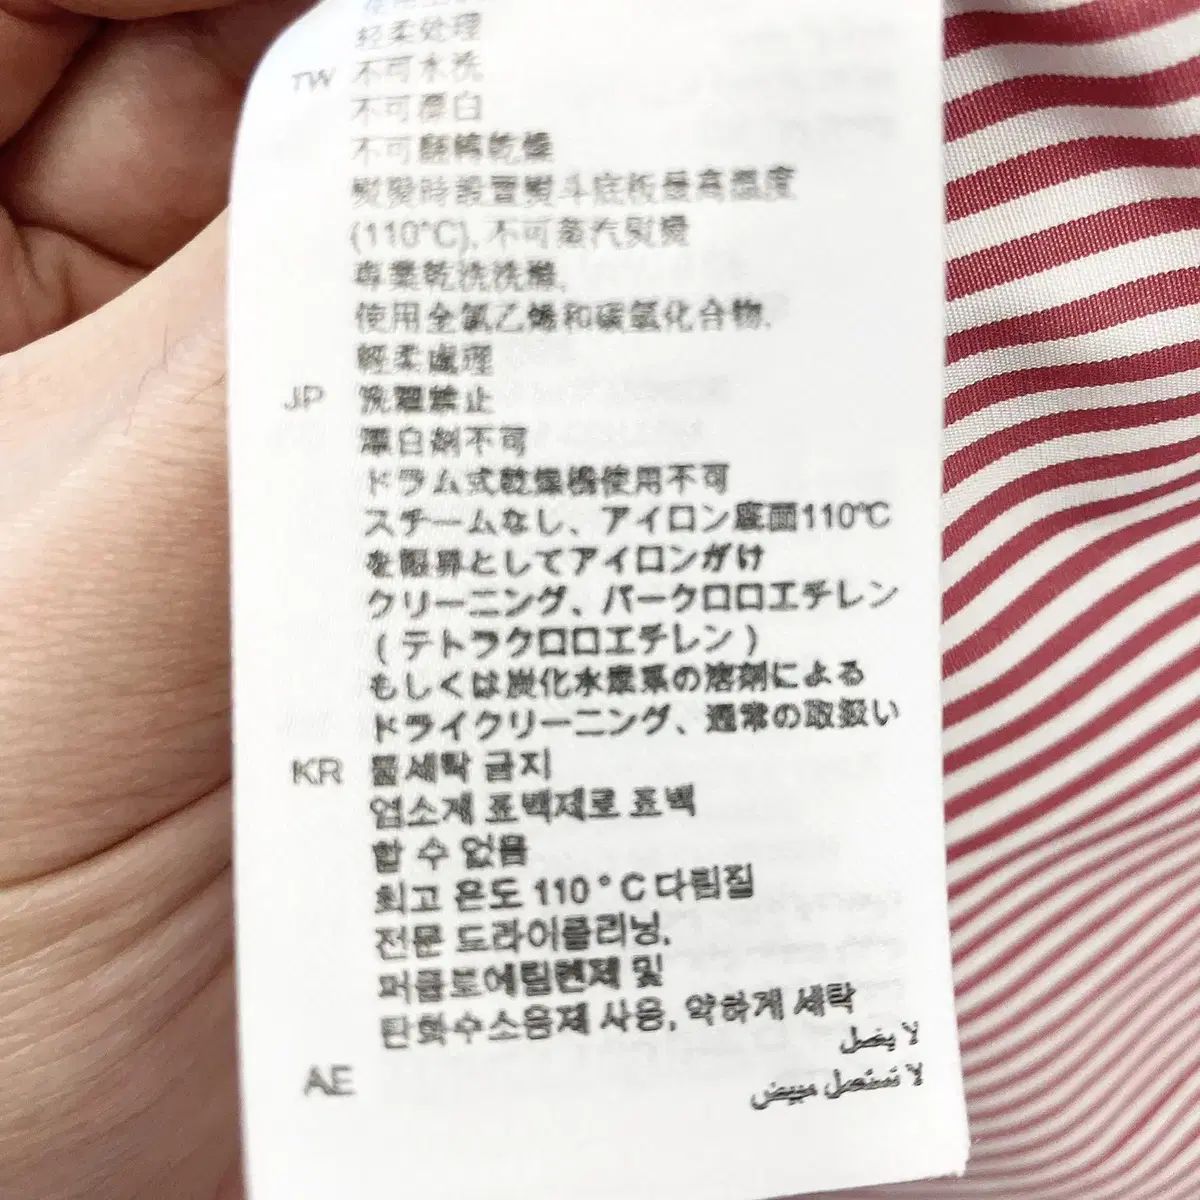 轻柔处理
TW 不可水洗
不可漂白
不可翻轉乾燥
熨燙時設置熨斗底板最高溫度
(110°C), 不可蒸汽熨燙
專業乾洗洗滌,
使用全氯乙烯和碳氫化合物,
輕柔處理
JP 洗濯禁止
漂白剤不可
ドラム式乾燥機使用不可
スチームなし、アイロン底面110℃
を限界としてアイロンがけ
クリーニング、パークロロエチレン
(テトラクロロエチレン)
もしくは炭化水素系の溶剤による
ドライクリーニング、通常の取扱い
KR 물세탁 금지
염소계 표백제로 표백
할 수 없음
최고 온도 110°C 다림질
전문 드라이클리닝,
퍼클로에틸렌제 및
탄화수소용제 사용, 약하게 세탁
لا يغسل
AE لا تستعمل مبيض